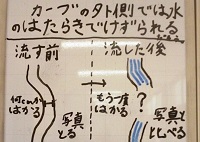 カーブの外側では水
のはたらきでけずられる
流す前
流した後
何cmか
はかる
写真
とる
もう一度
はかる
？
写真と
くらべる